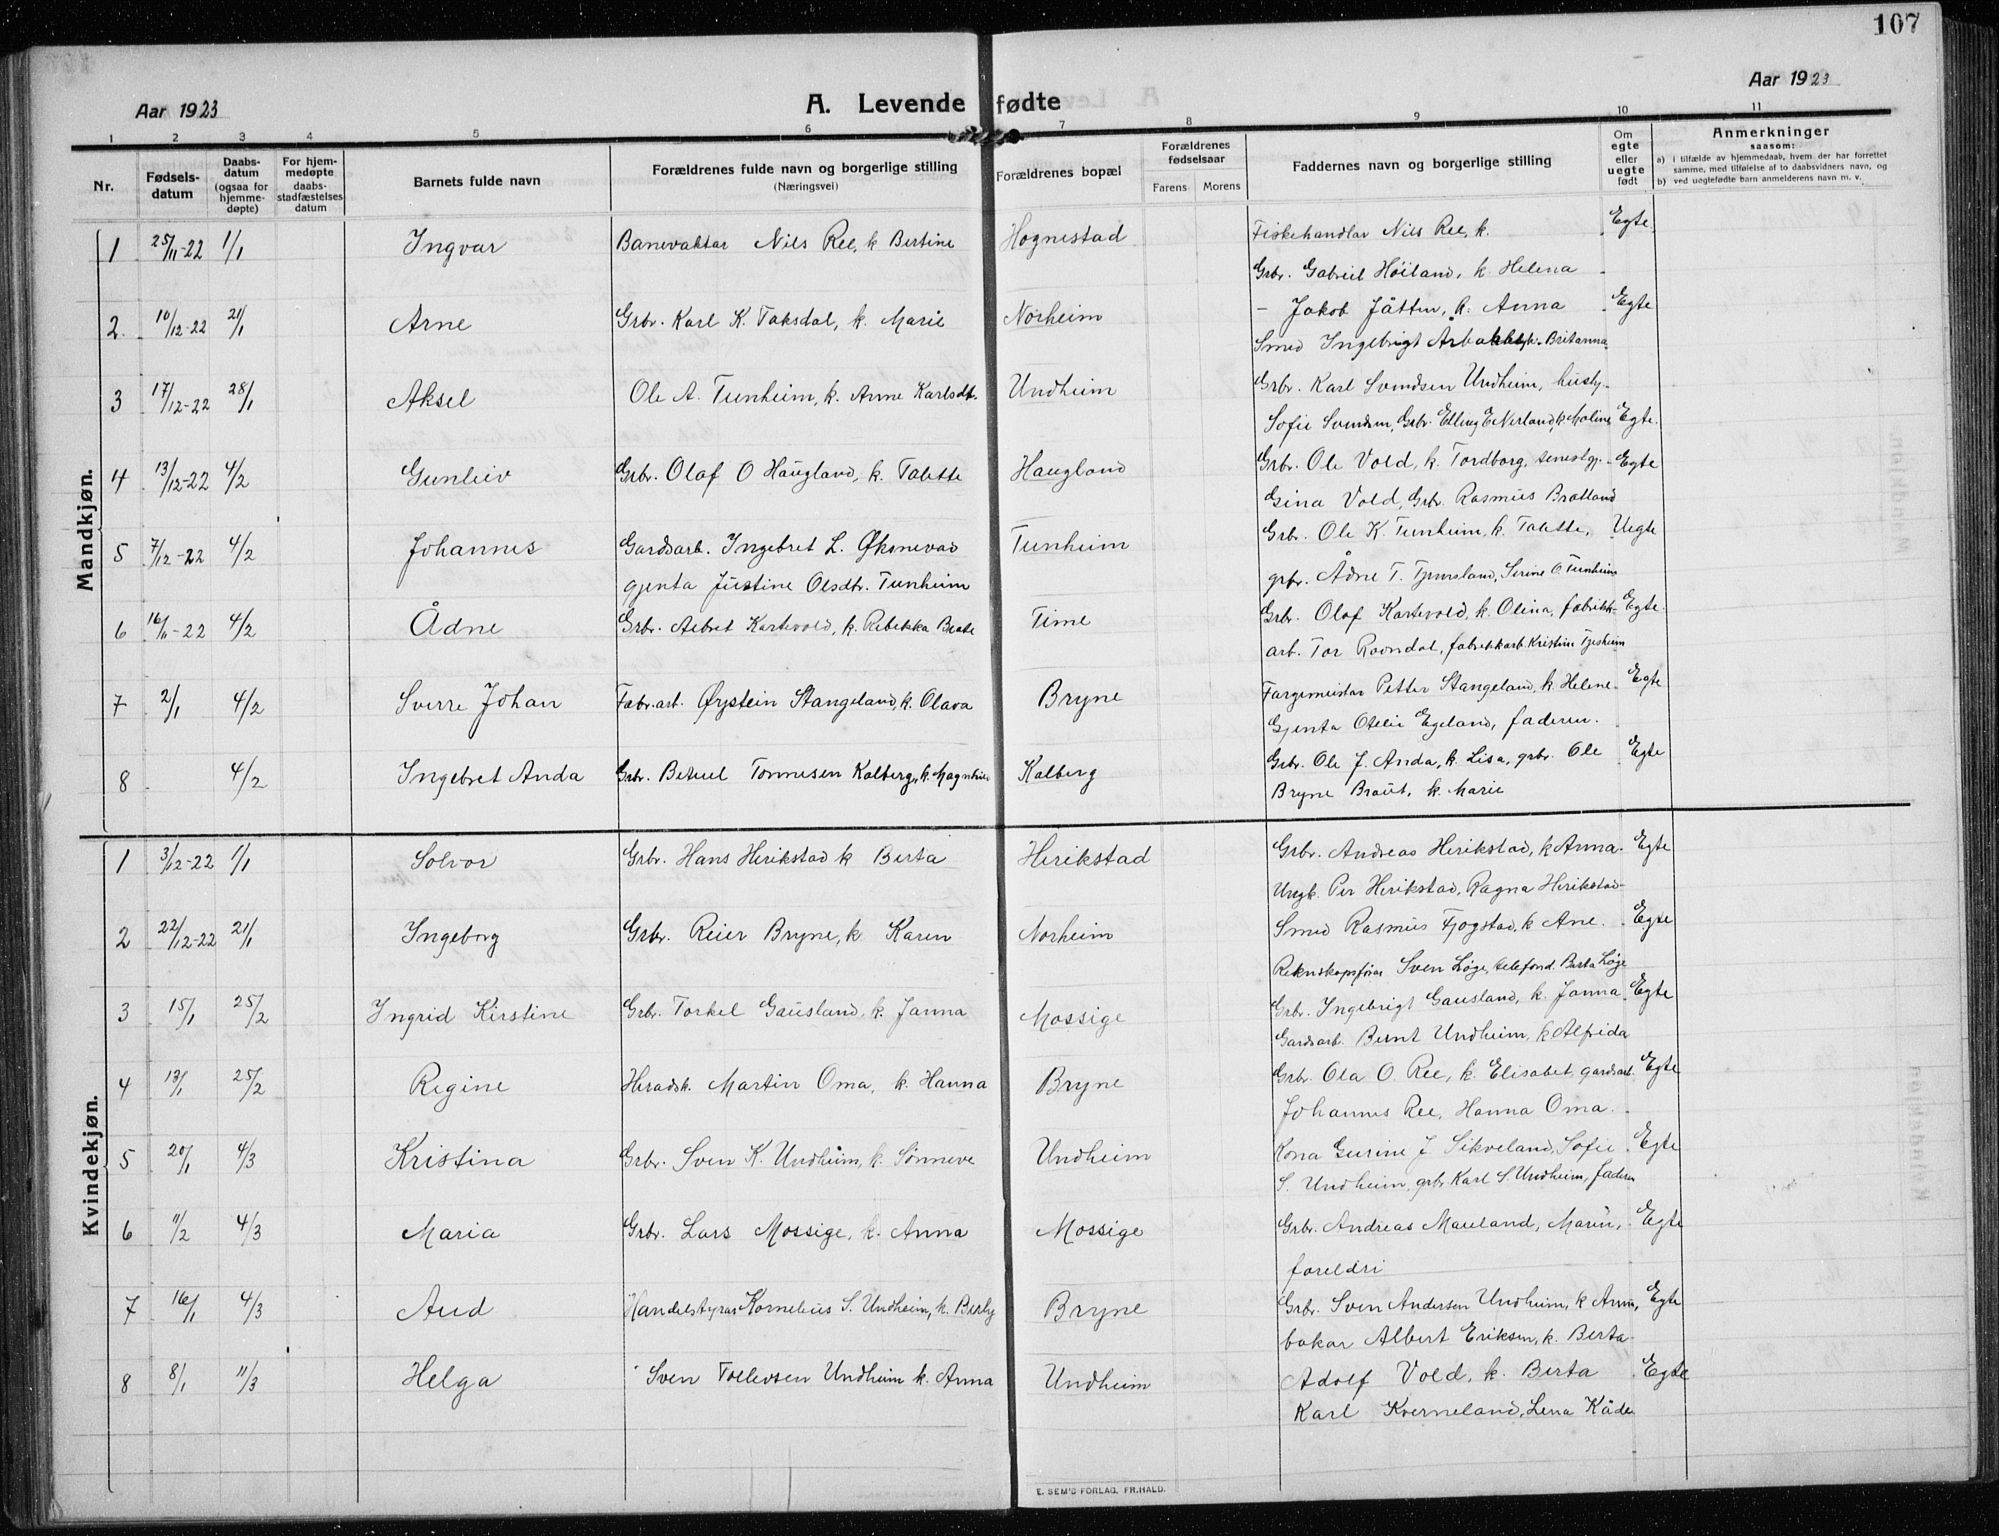 107
Aar 1923
A. Levende fødte
Aar 1923
1 2 3 4 5 6 7 8 9 10 11
Nr.
Fødsels-datum
Daabs-datum (ogsaa for hjemme-døpte)
For hjem-medøpte daabs-stadfæstelses datum
Barnets fulde navn
Forældrenes fulde navn og borgerlige stilling (Næringsvei)
Forældrenes bopæl
Forældrenes fødselsaar
Farens Morens
Faddernes navn og borgerlige stilling
Om egte eller uegte født
Anmerkninger saasom:
a) i tilfælde av hjemmedaab, hvem der har forrettet samme, med tilføielse af to daabsvidners navn, og
b) ved uegtefødte barn anmelderens navn m. v.
Mandkjøn.
1 25/11-22 1/1 Ingvar Banevaktar Nils Ree, k Bertine Hognestad Fiskehandlar Nils Ree, k. Egte
Grbr. Gabriel Höiland, k. Helena
2. 10/12-22 21/1 Arne Grbr. Karl K. Taksdal, k. Marie Norheim - Jakob Jåtten, k. Anna Egte
Smed Ingebrigt k. Britanna
3 17/12-22 28/1 Aksel Ole A. Tunheim, k. Anne Karlsdt. Undheim Grbr. Karl Svendsen Undheim, husly.
Sofie Svendsen, Grbr. Elling E Nerland, k Moline Egte.
4 13/12-22 4/2 Gunleiv Grbr. Olaf O Haugland, k. Talette Haugland Grbr. Ole Vold, k. Tordborg, tenestgj. Egte
Gina Vold, Grbr. Rasmus Bratland
5 7/12-22 4/2 Johannes Gardsarb. Ingebret L. Øksnevad Tunheim Grbr. Ole K. Tunheim, k. Talette, Uegte
gjenta Justine Olsdtr. Tunheim grbr. Ådne T. Tjensland, Serine O. Tunheim
6 16/11-22 4/2 Ådne Grbr. Aebret Kartevold, k. Rebekka Beate Time Grbr. Olaf Kartevold, k. Olina, fabrikk- Egte
arb. Tor Ravndal, fabrikkarb. Kristine Tjesheim
7 2/1 4/2 Sverre Johan Fabr.arb. Øystein Stangeland, k. Olava Bryne Fargemeistar Petter Stangeland, k. Helene Egte
Gjenta Otelie Egeland, faderen.
8 4/2 Ingebret Anda Grbr. Betuel Tønnesen Kalberg, k. Magnhild Kalberg Grbr. Ole J. Anda, k. Lisa, grbr. Ole Egte
Bryne Braut, k. Marie
Kvindekjøn.
1 3/12-22 1/1 Solvor Grbr. Hans Herikstad k Berta Herikstad Grbr. Andreas Herikstad, k Anna Egte
Ungk. Per Herikstad, Ragna Herikstad
2 22/12-22 21/1 Ingeborg Grbr. Reier Bryne, k Karen Norheim Smed Rasmus Fjogstad, k Ane. Egte
Reknskapsførar Sven Løge, telefond. Berta Løge
3 15/1 25/2 Ingrid Kirstine Grbr. Torkel Gausland, k. Janna Mossige Grbr. Ingebrigt Gausland, k. Janna Egte
Gardsarb. Bernt Undheim, k Alfrida
4 13/1 25/2 Regine Heradsk. Martin Oma, k. Hanna Bryne Grbr. Ola O. Ree, k. Elisabet, gardsarb. Egte
Johannes Ree, Hanna Oma.
5 20/1 4/3 Kristina Grbr. Sven K. Undheim, k. Sønneve Undheim Kona Gurine J Sikveland, Sofie Egte
S. Undheim, grbr Karl S. Undheim, faderen
6 11/2 4/3 Maria Grbr. Lars Mossige, k. Anna Mossige Grbr. Andreas Mauland, Marie, Egte
foreldri
7 16/1 4/3 Aud Handelstyrar Kornelius S. Undheim, k. Berly Bryne Grbr. Sven Andersen Undheim, k Anna, Egte
bakar Albert Eriksen, k. Berta
8 8/1 11/3 Helga Sven Tollevsen Undheim k. Anna Undheim Adolf Vold, k. Berta Egte
Karl Kverneland, Lena Kåde
E. SEM'S FORLAG, FR.HALD.